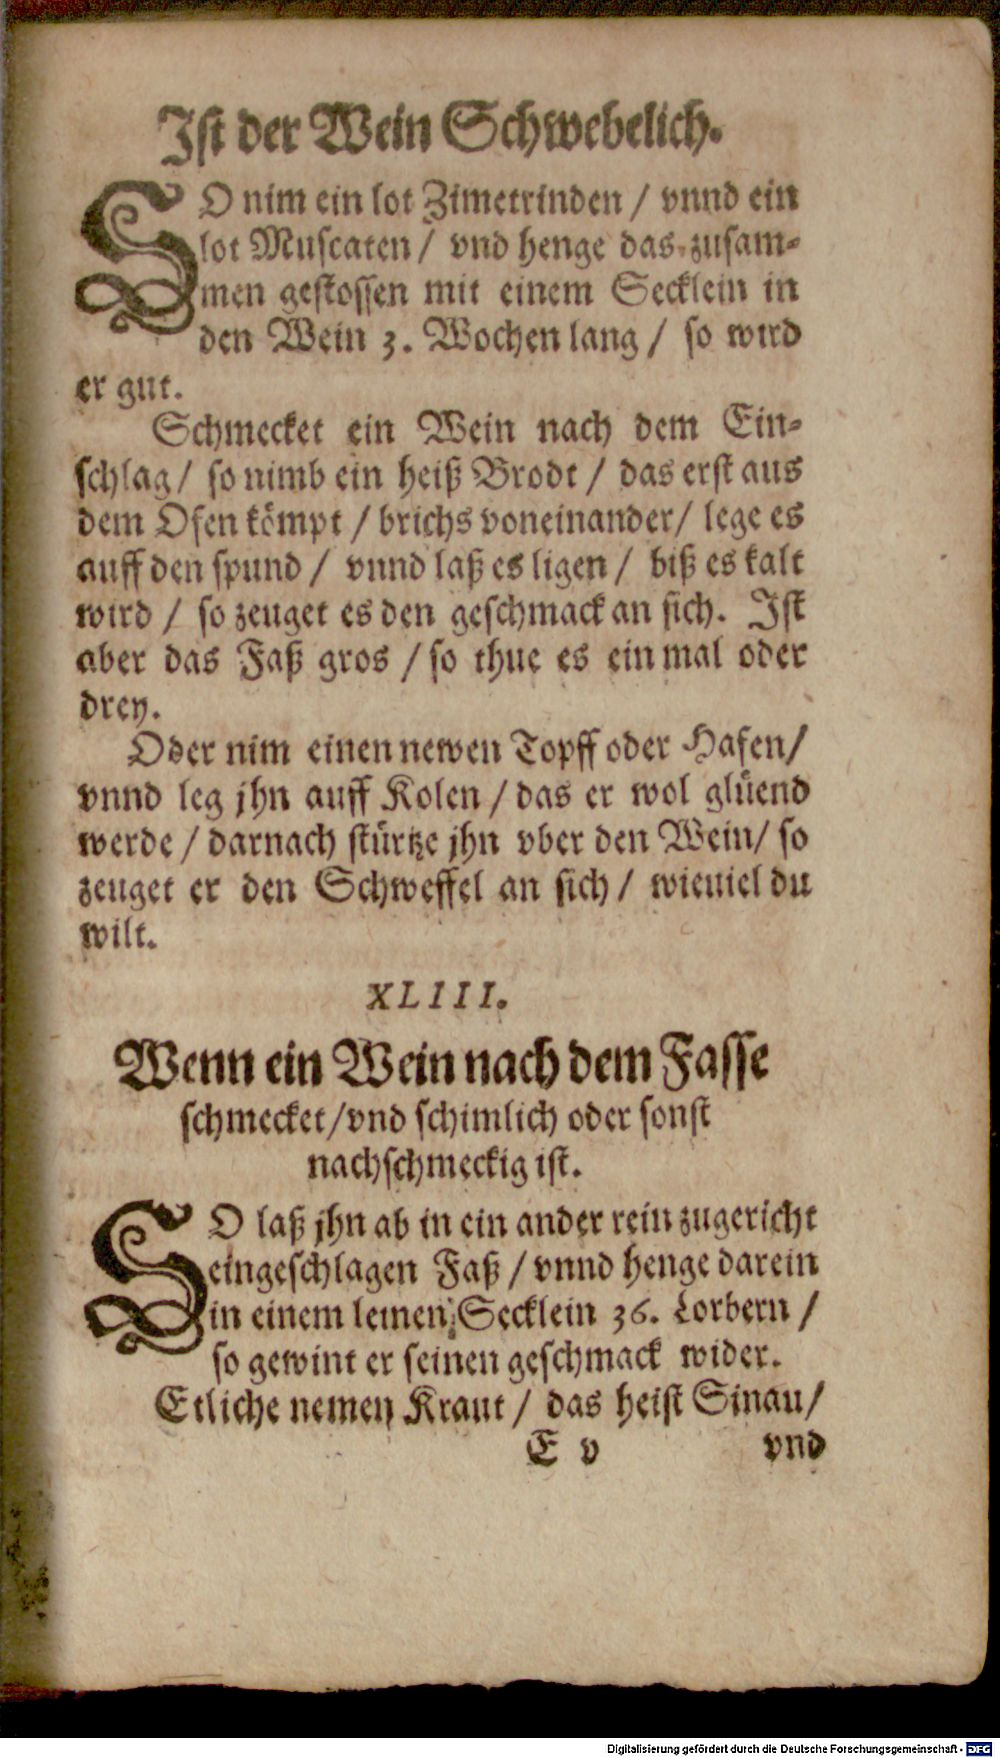 Ist der Wein Schwebelich.
SO nim ein lot Zimetrinden / vnnd ein
lot Muscaten / vnd henge das zusam-
men gestossen mit einem Secklein in
den Wein 3. Wochen lang / so wird
er gut.
Schmecket ein Wein nach dem Ein-
schlag / so nimb ein heiß Brodt / das erst aus
dem Ofen kömpt / brichs voneinander / lege es
auff den spund / vnnd laß es ligen / biß es kalt
wird / so zeuget es den geschmack an sich. Ist
aber das Faß gros / so thue es ein mal oder
drey.
Oder nim einen newen Topff oder Hafen /
vnnd leg jhn auff Kolen / das er wol glüend
werde / darnach stürtze jhn vber den Wein / so
zeuget er den Schweffel an sich / wieuiel du
wilt.
XLIII.
Wenn ein Wein nach dem Fasse
schmecket / vnd schimlich oder sonst
nachschmeckig ist.
SO laß jhn ab in ein ander rein zugericht
eingeschlagen Faß / vnnd henge darein
in einem leinen Secklein 36. Lorbern /
so gewint er seinen geschmack wider.
Etliche nemen Kraut / das heist Sinau /
E v vnd
Digitalisierung gefördert durch die Deutsche Forschungsgemeinschaft - DFG